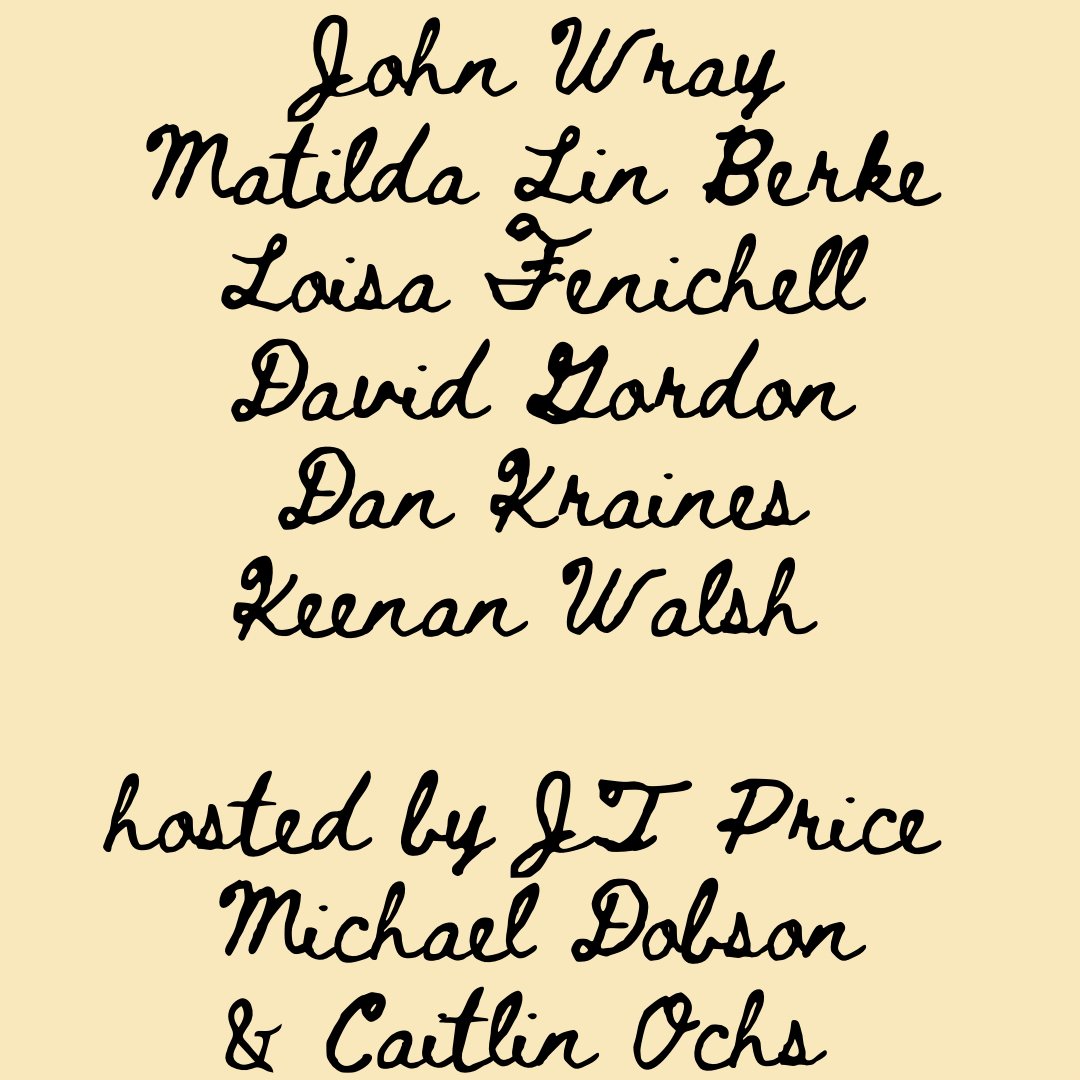 John Wray
Matilda Lin Berke
Loisa Fenichell
David Gordon
Dan Kraines
Keenan Walsh
hosted by JT Price
Michael Dobson
& Caitlin Ochs